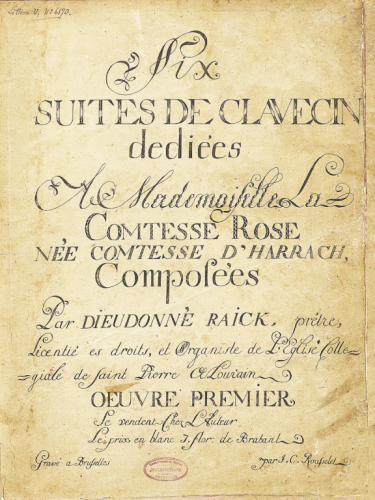 Littera V, Nº 6170.
Six
SUITES DE CLAVECIN
dediées
A Mademoiselle La
COMTESSE ROSE
NÉE COMTESSE D'HARRACH,
Composées
Par DIEUDONNÈ RAICK, prêtre,
Licentié es droits, et Organiste de L'Eglise Colle-
=giale de Saint Pierre A Louvain
OEUVRE PREMIER
Se vendent Chez L'Auteur
Le prix en blanc 7. flor. de Brabant
Gravé a Bruselles par J. C. Rousselet